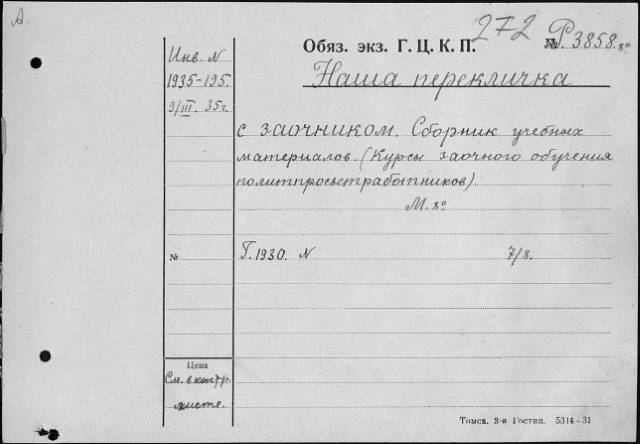 А.
272
Обяз. экз. Г. Ц. К. П. № Р3858. 8°
Инв. N
1935-195.
9/III. 35г.
Наша перекличка
с заочником. Сборник учебных
материалов. (Курсы заочного обучения
политпросветработников).
М. 8°
№ Г. 1930. N 7/8.
Цена
См. в контр.
листе.
Томск. 3-я Гостип. 5314-31